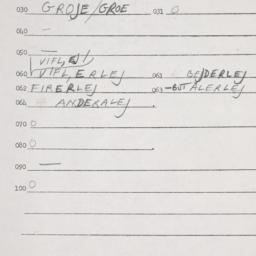 030 GROJE/GROE 031 0
040 —
050 —
VIFL,
060 VIFL, ERLEJ 061 BEJDERLEJ
062 FIRERLEJ 063 -BUT ALERLEJ
064 ANDERALEJ
070 0
080 0
090 —
100 0